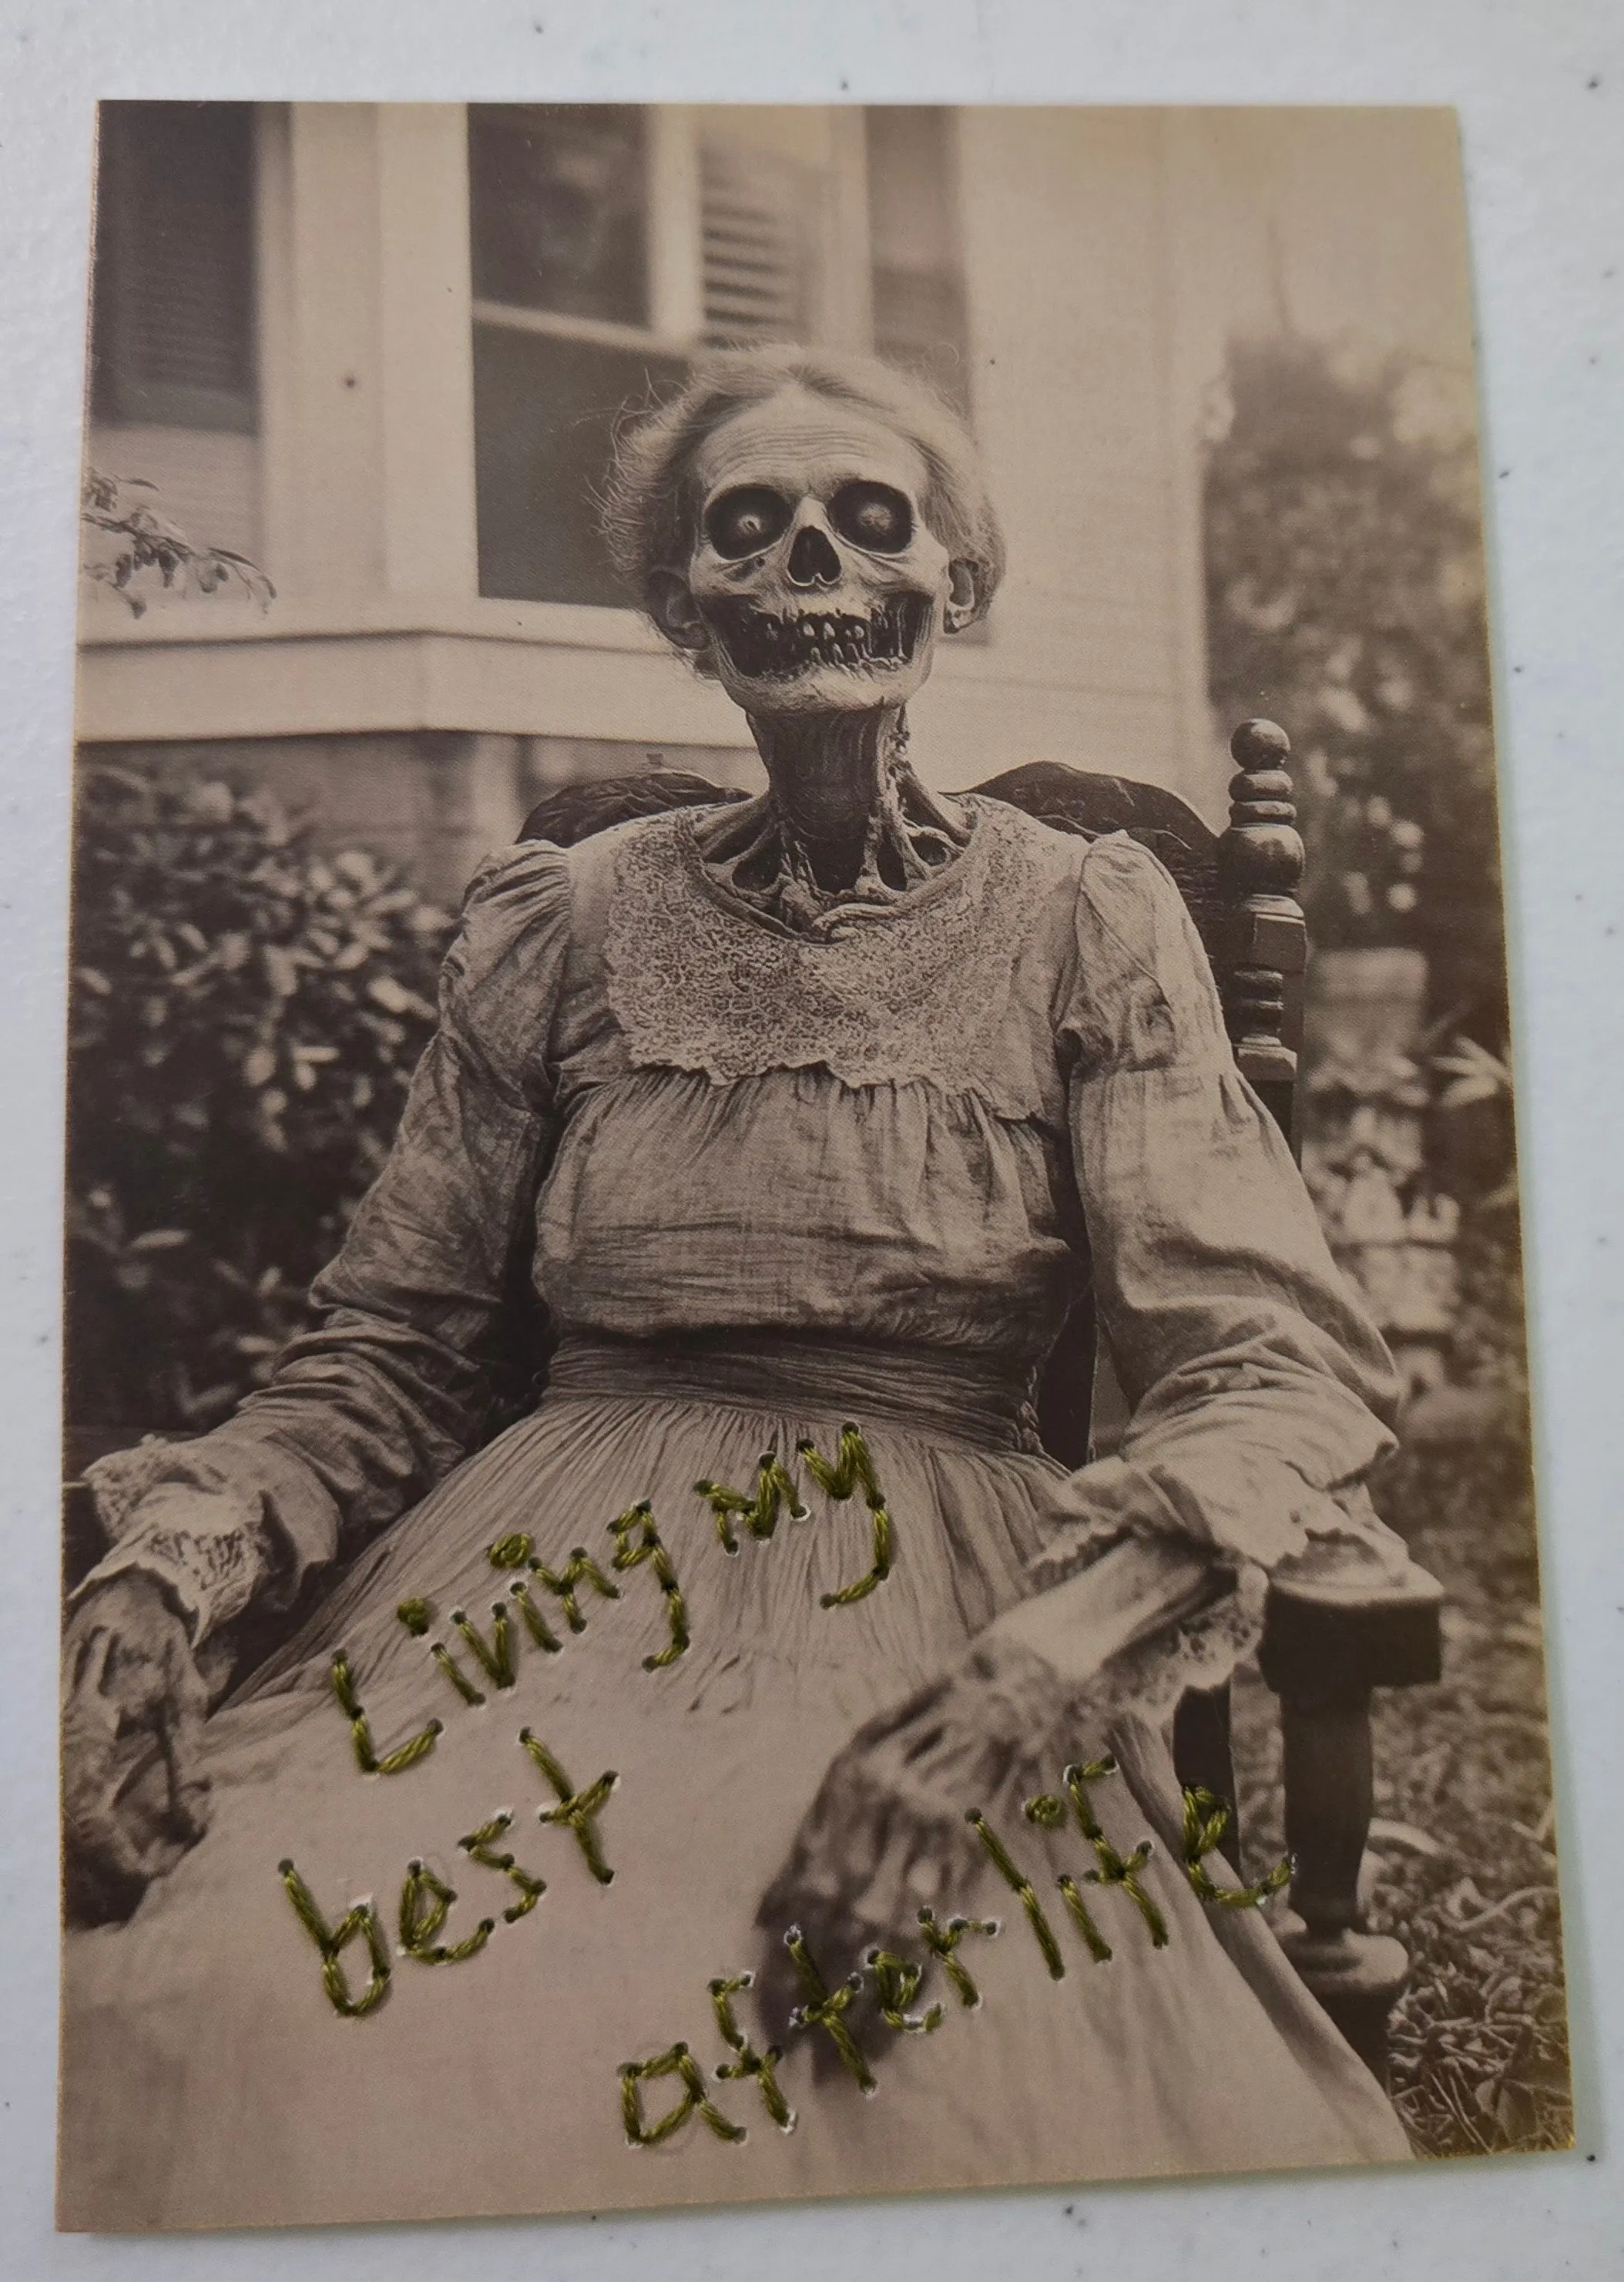 Living my
best
afterlife